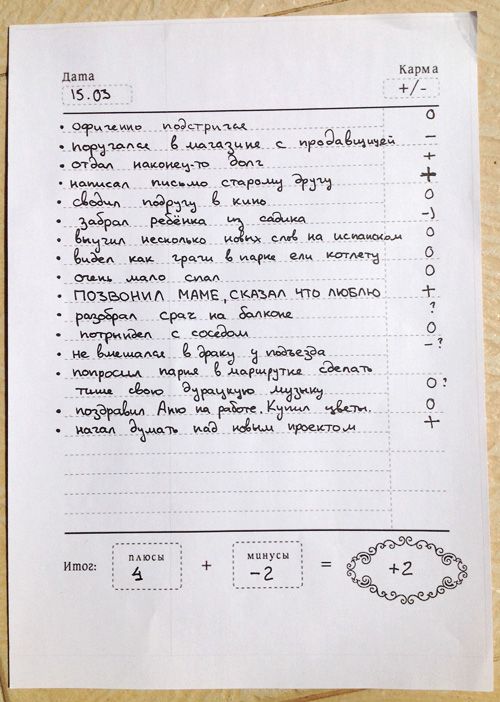 Дата
Карма
15.03
+/-
• офигенно подстригся 0
• поругался в магазине с продавщицей –
• отдал наконец-то долг +
• написал письмо старому другу +
• сводил подругу в кино 0
• забрал ребёнка из садика -)
• выучил несколько новых слов на испанском 0
• видел как грачи в парке ели котлету 0
• очень мало спал 0
• ПОЗВОНИЛ МАМЕ, СКАЗАЛ ЧТО ЛЮБЛЮ +
• разобрал срач на балконе ?
• потрындел с соседом 0
• не вмешался в драку у подъезда –?
• попросил парня в маршрутке сделать
тише свою дурацкую музыку 0?
• поздравил Аню на работе. Купил цветы. 0
• начал думать над новым проектом +
Итог: плюсы 4 + минусы -2 = +2